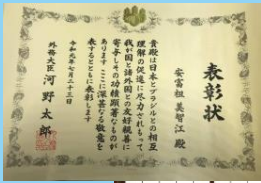 表彰状
安富祖 美智江 殿
貴殿は日本とブラジルとの相互
理解の促進に尽力されもって
我が国と諸外国との友好親善に
寄与しその功績顕著なものが
あります ここに深甚なる敬意を
表するとともに表彰します
令和元年七月二十三日
外務大臣 河野太郎